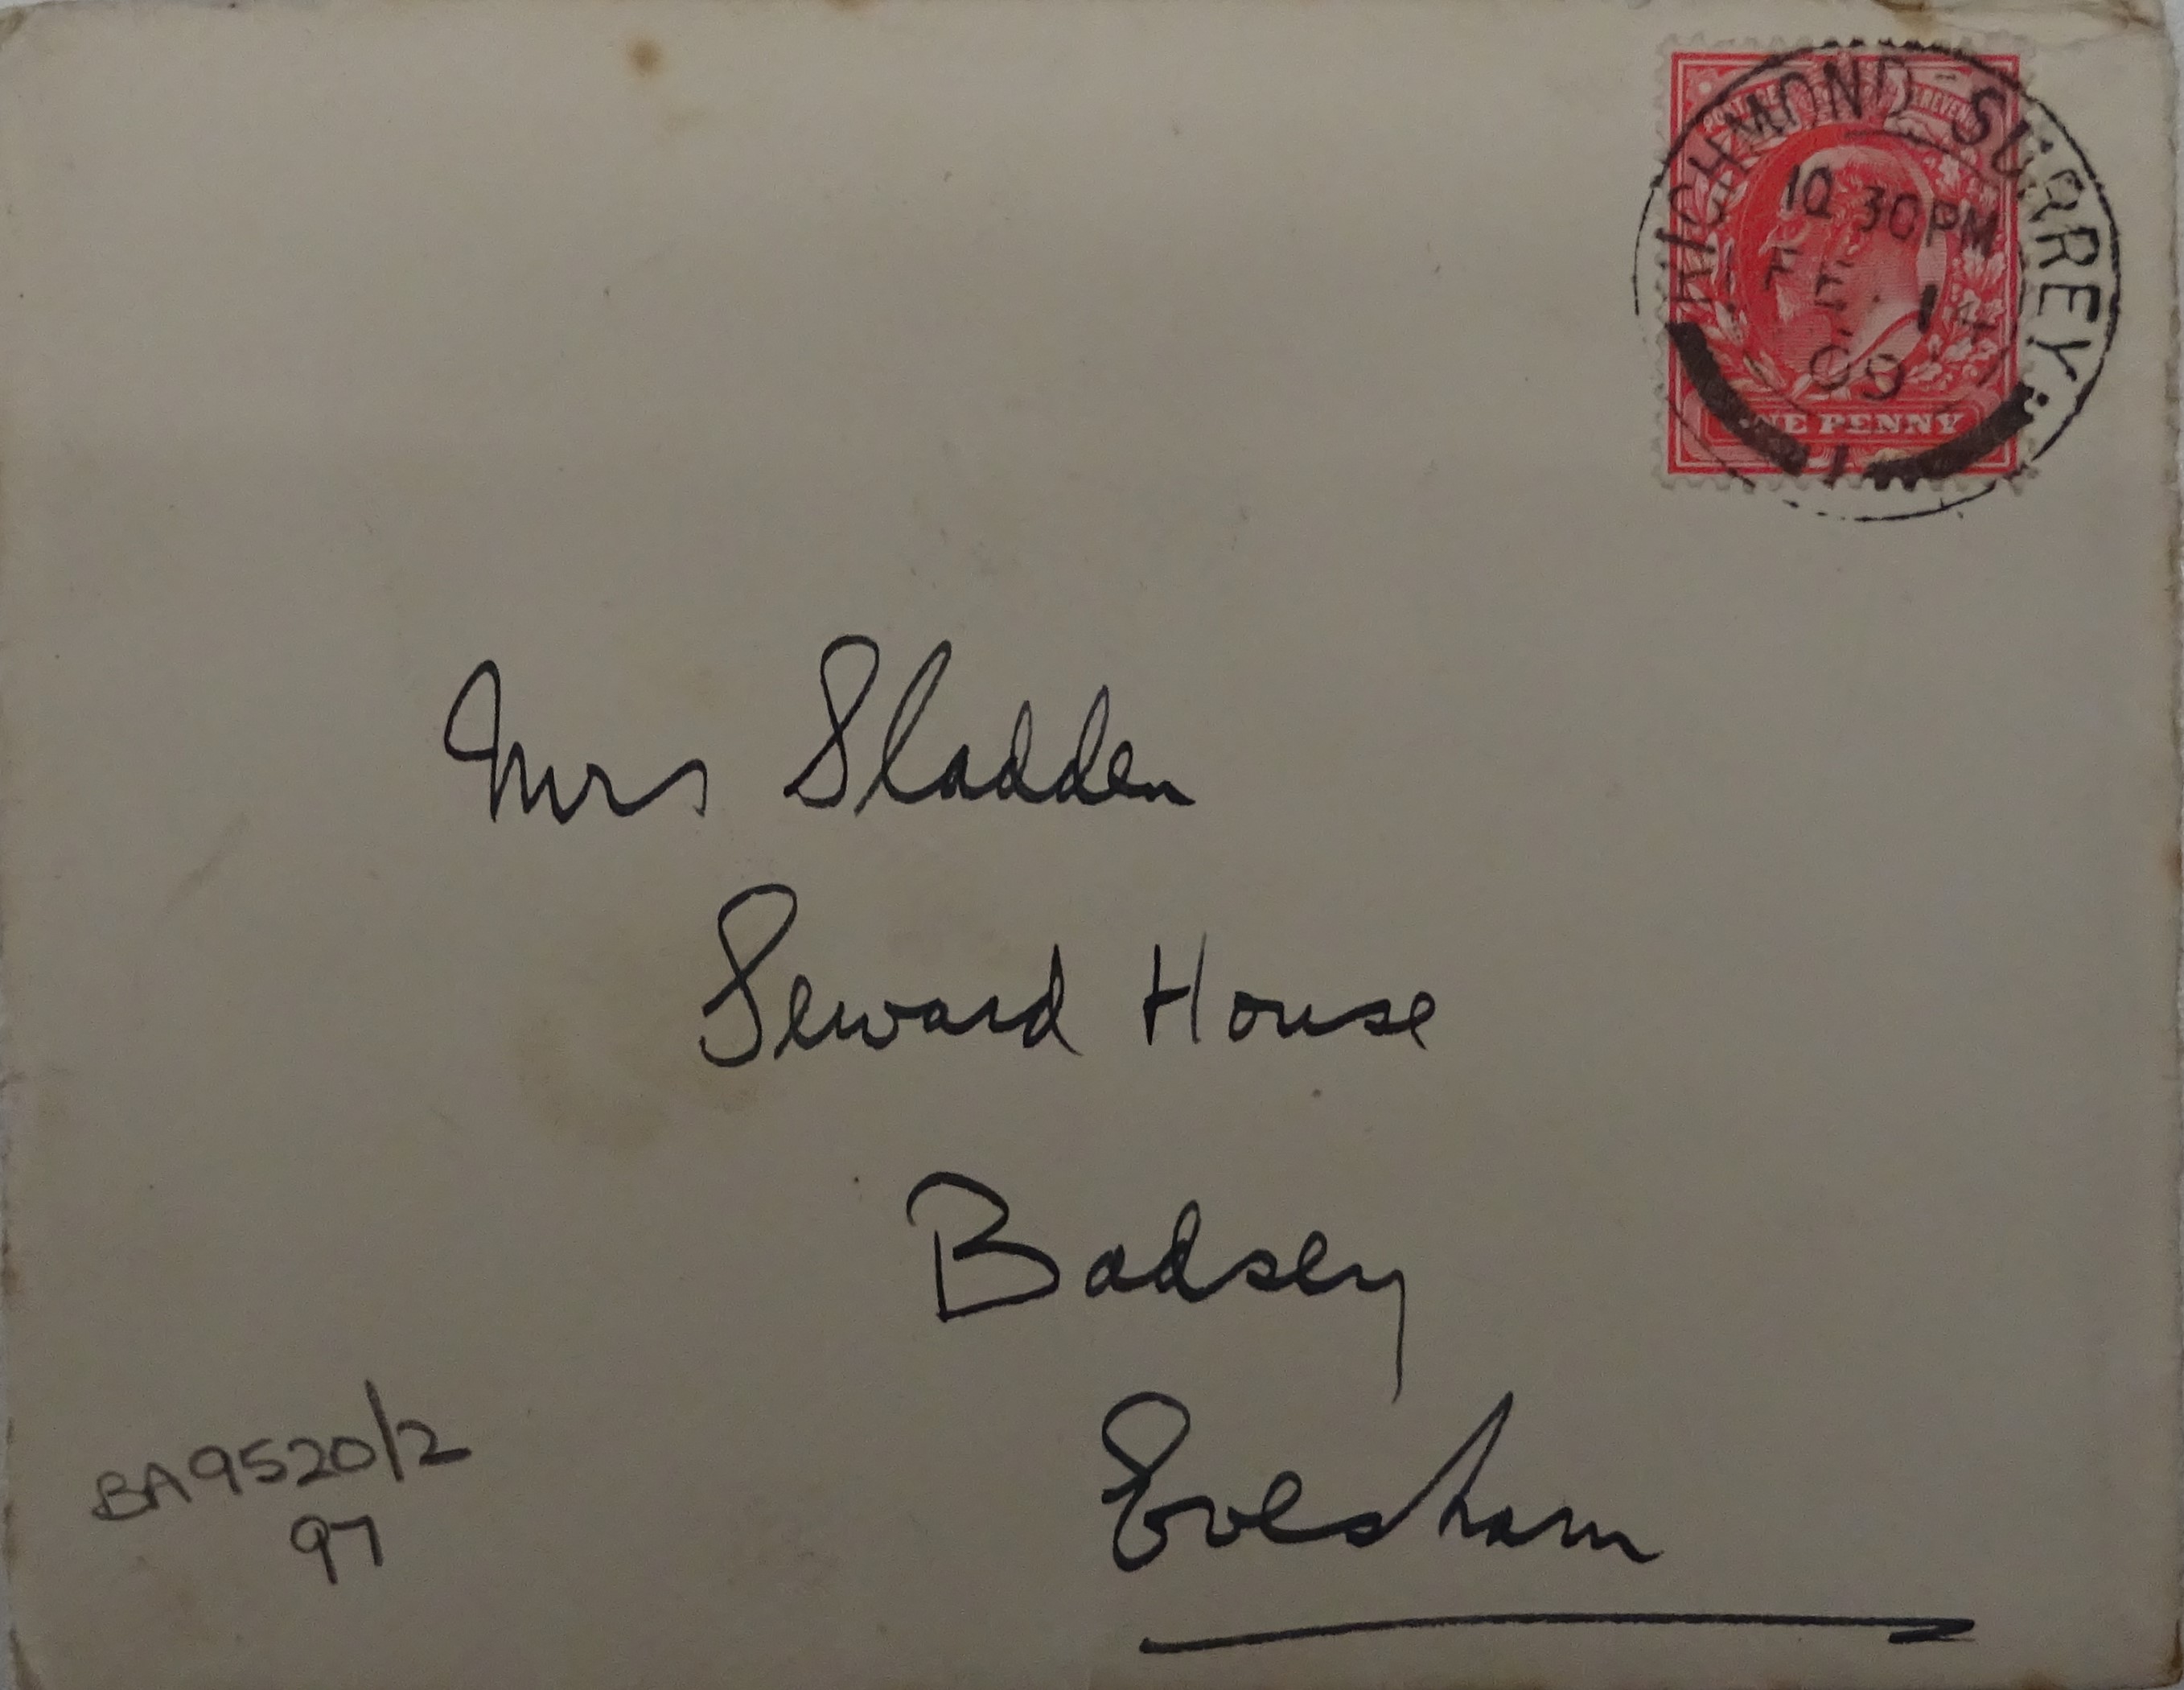 RICHMOND-SURREY
10 30PM
09
1
ONE PENNY
Mrs Sladden
Seward House
Badsey
Evesham
BA9520/2
97